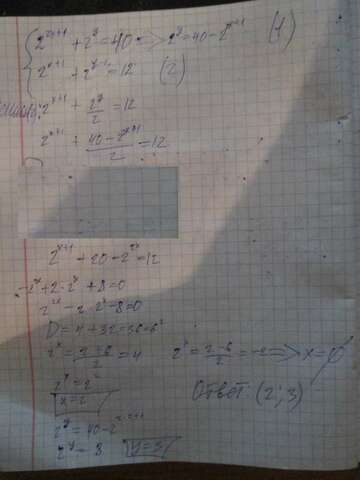 2^{2x+1} + 2^y = 40 => 2^y = 40 - 2^{2x+1} (1)
2^{x+1} + 2^{y-1} = 12 (2)
2^{x+1} + 2^y/2 = 12
2^{x+1} + (40 - 2^{2x+1})/2 = 12
2^{x+1} + 20 - 2^{2x} = 12
-2^{2x} + 2·2^x + 8 = 0
2^{2x} - 2·2^x - 8 = 0
D = 4 + 32 = 36 = 6²
2^x = (2+6)/2 = 4 2^x = (2-6)/2 = -2 => x = ∅
2^x = 2²
x = 2 Ответ: (2; 3)
2^y = 40 - 2^{2·2+1}
2^y = 8 y = 3